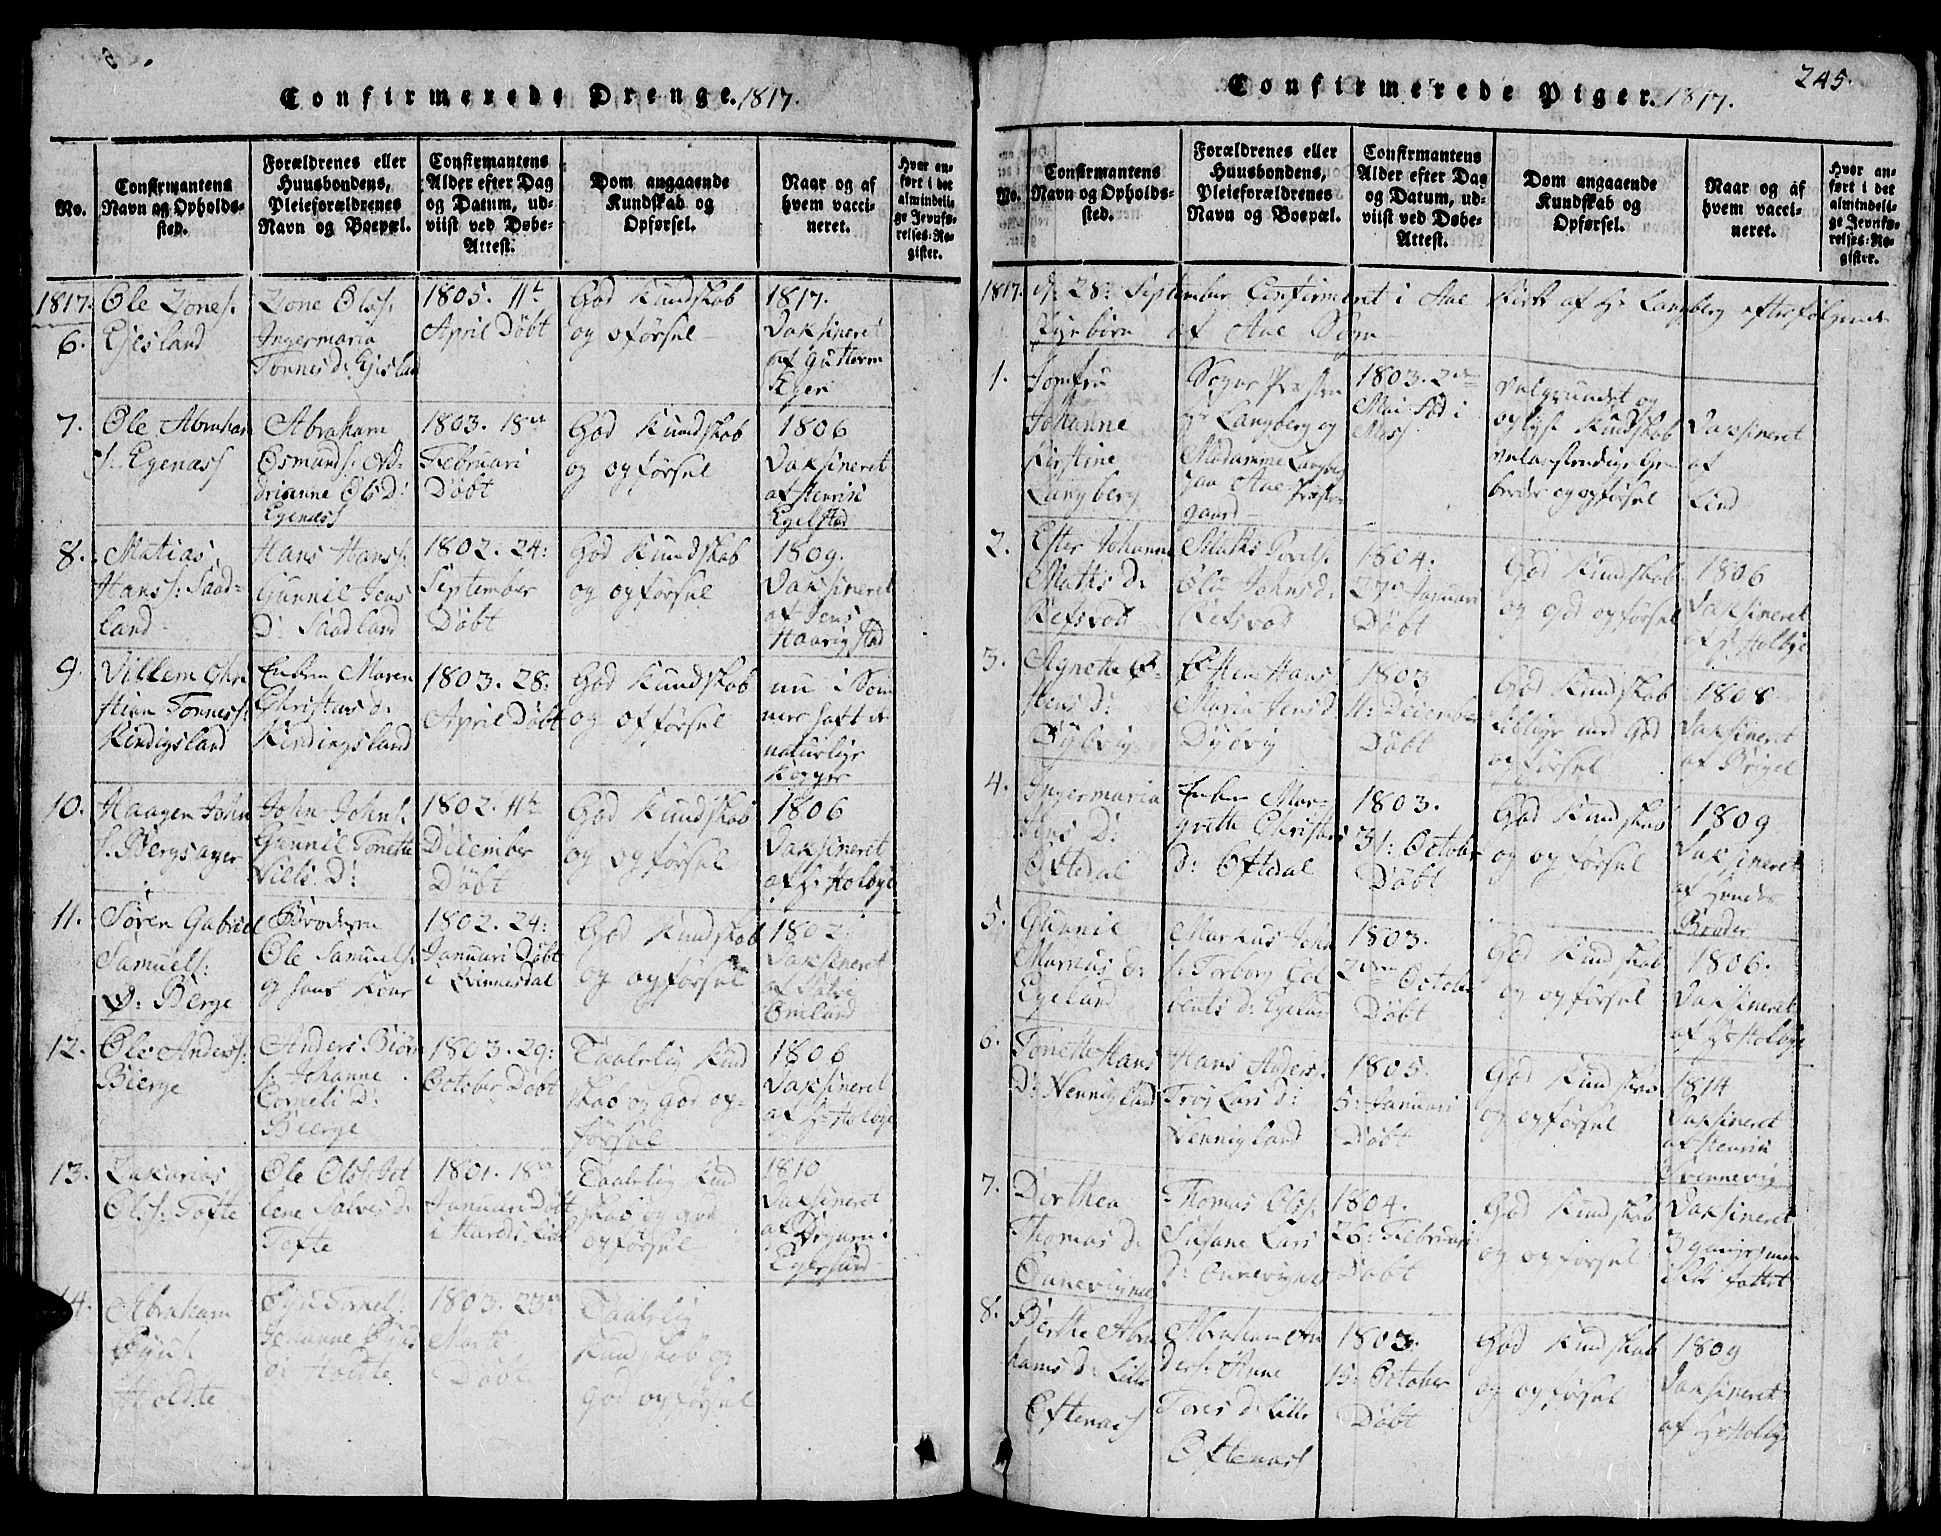 Confirmerede Drenge. 1817.
No.
Confirmantens
Navn og Opholds-
sted.
Forældrenes eller
Huusbondens,
Pleieforældrenes
Navn og Boepæl.
Confirmantens
Alder efter Dag
og Datum, ud-
viist ved Døbe-
Attest.
Dom angaaende
Kundskab og
Opførsel.
Naar og af
hvem vacci-
neret.
Hvor an-
ført i det
almindeli-
ge Jevnfø-
relses-Re-
gister.
1817.
6.
Ole Zones:
Ejesland
Zone Olss:
Ingermaria
Tønnes d: Ejesland
1805. 11te
April Døbt
God Kundskab
og oførsel
1817.
Vaksineret
af Guttorm
Eger
7.
Ole Abraham
s: Egenæss
Abraham
Osmunds: Ad-
drianne Ols D:
Egenæss
1803. 18de
Februari
Døbt
God Kundskab
og opførsel
1806
Vaksineret
af Henrik
Egelstad
8.
Matias
Hanss: Saad-
land
Hans Hans:
Gunnil Jens
D: Saadland
1802. 24:
September
Døbt
God Kundskab
og opførsel
1809.
Vaksineret
af Jens
Haarigstad
9.
Villem Chri
stian Tønness:
Kindigsland
Enken Maren
Christens d:
Kindingsland
1803. 28:
April Døbt
God Kundskab
og opførsel
nu i Som
mer haft de
naturlige
Kopper
10.
Haagen John
s: Bergsager
John Johns:
Gunnil Tonette
Nills D:
1802. 11te
December
Døbt
God Kundskab
og opførsel
1806
Vaksineret
af Hr Holbye
11.
Søren Gabriel
Samuels:
Ø: Berge
Broderen
Ole Samuels:
og hans Kone
1802. 24:
Januari Døbt
i Qvinnesdal
God Kundskab
og opførsel
1802.
Vaksineret
af Salve
Omland
12.
Ole Anders:
Bierge
Anders Biørn
s: Johanne
Corneli D:
Bierge
1803. 29:
October Døbt
Taalelig Kund
skab og God op-
førsel
1806
Vaksineret
af Hr Holbye
13.
Zakarias
Olss: Tofte
Ole Ols: Jet
lene Salves D:
Tofte
1801. 18de
Januari Døbt
Taalelig Kund
skab og god
opførsel
1810
Vaksineret
Egersund
14.
Abraham
Holdte
Johanne
d: Holdte
1803. 23de
Marti
Døbt
Taalelig
Kundskab og
god opførsel
Confirmerede Piger. 1817.
245.
No.
Confirmantens
Navn og Opholds-
sted.
Forældrenes eller
Huusbondens,
Pleieforældrenes
Navn og Boepæl.
Confirmantens
Alder efter Dag
og Datum, ud-
viist ved Døbe-
Attest.
Dom angaaende
Kundskab og
Opførsel.
Naar og af
hvem vacci-
neret.
Hvor an-
ført i det
almindeli-
ge Jevnfø-
relses-Re-
gister.
1817. d: 28: September Confirmeret i Aae Kirke af Hr Langberg efterfølgende
Pigebørn af Aae Sogn
1.
Jomfru
Johanne
Kirstine
Langberg
Sogne Præsten
Hr Langberg og
Madamme Langberg
paa Aae Præste
gaard
1803. 2den
Mai fød i
Moss
Velgrundet og
oplyst Kundskab
velanstændige Ge-
berder og opførsel
Vaksineret
af
Lind
2.
Ester Johanne
Matis D:
Refsvod
Matis Povels:
Ole Johns d:
Refsvod
1804.
27de Januari
Døbt
God Kundskab
og god opførsel
1806
Vaksineret
af Hr Holbye
3.
Agnethe Ø-
stens D:
Dybvig
Østen Hans
Maria Jens d:
Dybvig
1803
11: December
Døbt
God Kundskab
med God
opførsel
1808
Vaksineret
4.
Ingermaria
Jens D:
Oftedal
Enken Mar-
grethe Christens
D: Oftedal
1803.
31: October
Døbt
God Kundskab
og opførsel
1809
Vaksineret
af hendes
Broder
5.
Gunnil
Markus D:
Egeland
Markus John
s: Torborg
D: Egeland
1803.
2den October
Døbt
God Kundskab
og opførsel
1806.
Vaksineret
af Hr Holbye
6.
Tonette Hans
D: Vennigland
Hans Anders:
Lars d:
Vennigland
1805.
5: Januari
Døbt
God Kundskab
og opførsel
1814
Vaksineret
af Henrik
Qvennevig
7.
Dorthea
Thomas D:
Thomas Olss:
Susane Lars
1804.
26: Februari
Døbt
God Kundskab
og opførsel
Vaksineret
3 gange, men
ikke fattet
8.
Berthe Abra
hams D: Lille
Oftenæss
Abraham An
ders: Anne
Tores D: Lille
Oftenæss
1803.
15: October
Døbt
God Kundskab
og opførsel
1809
Vaksineret
af Hr Holbye